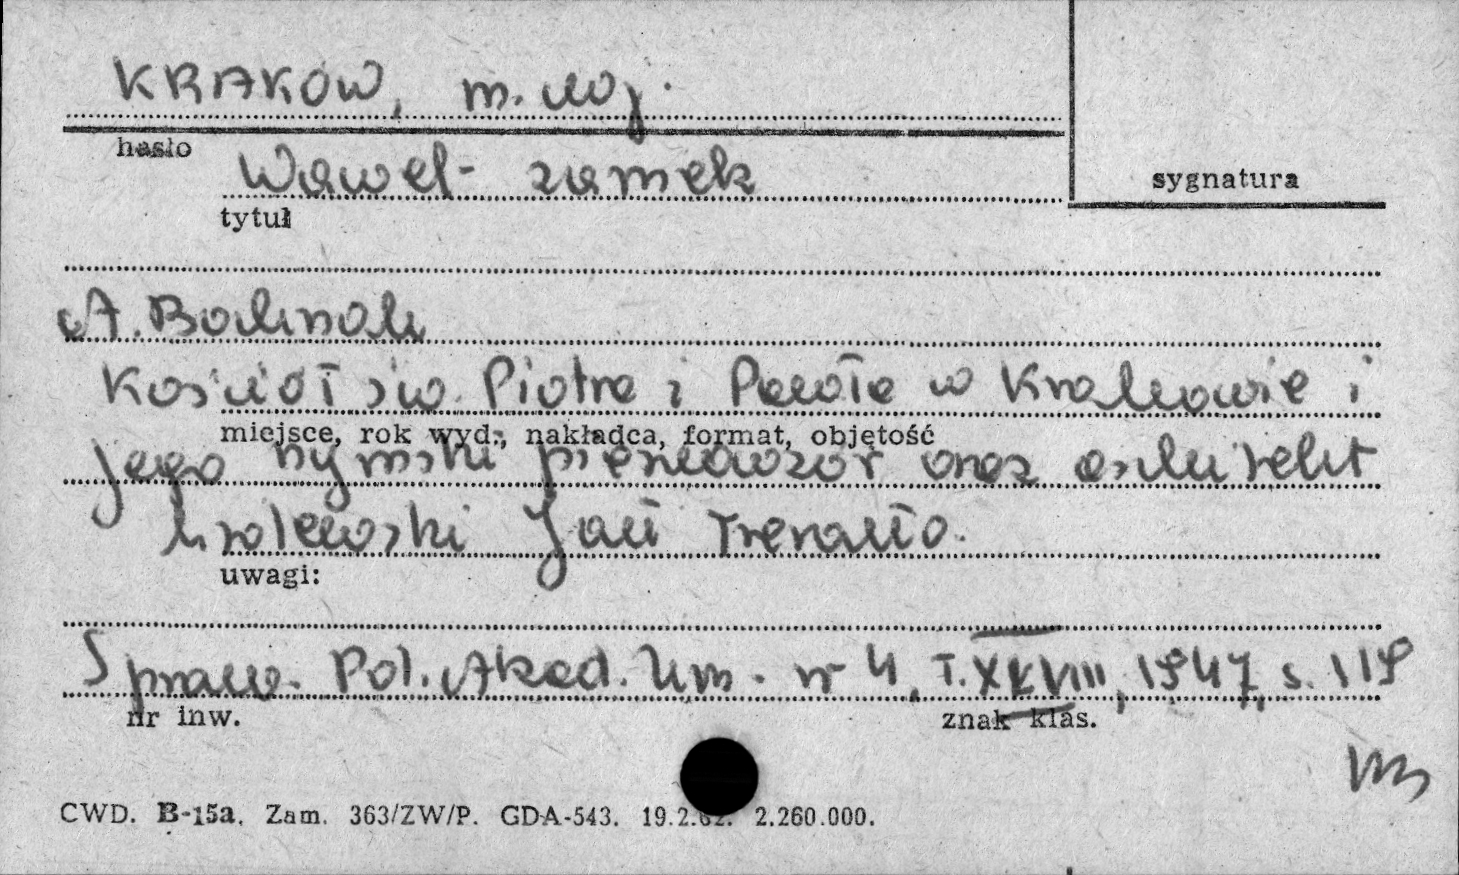 KRAKÓW, m. woj.
hasło
Wawel - zamek
sygnatura
tytuł
A. Bochnak
Kościół św. Piotra i Pawła w Krakowie i
miejsce, rok wyd., nakładca, format, objętość
jego rzymski pierwowzór oraz architekt
królewski Jan Trevano.
uwagi:
Spraw. Pol. Akad. Um. nr 4, T. XLVIII, 1947, s. 119
nr inw. znak klas.
CWD. B-15a. Zam. 363/ZW/P. GDA-543. 19.2.62. 2.260.000.